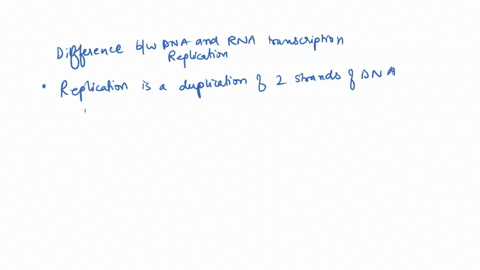 Difference b/w DNA and RNA transcription
Replication
• Replication is a duplication of 2 strands of DNA